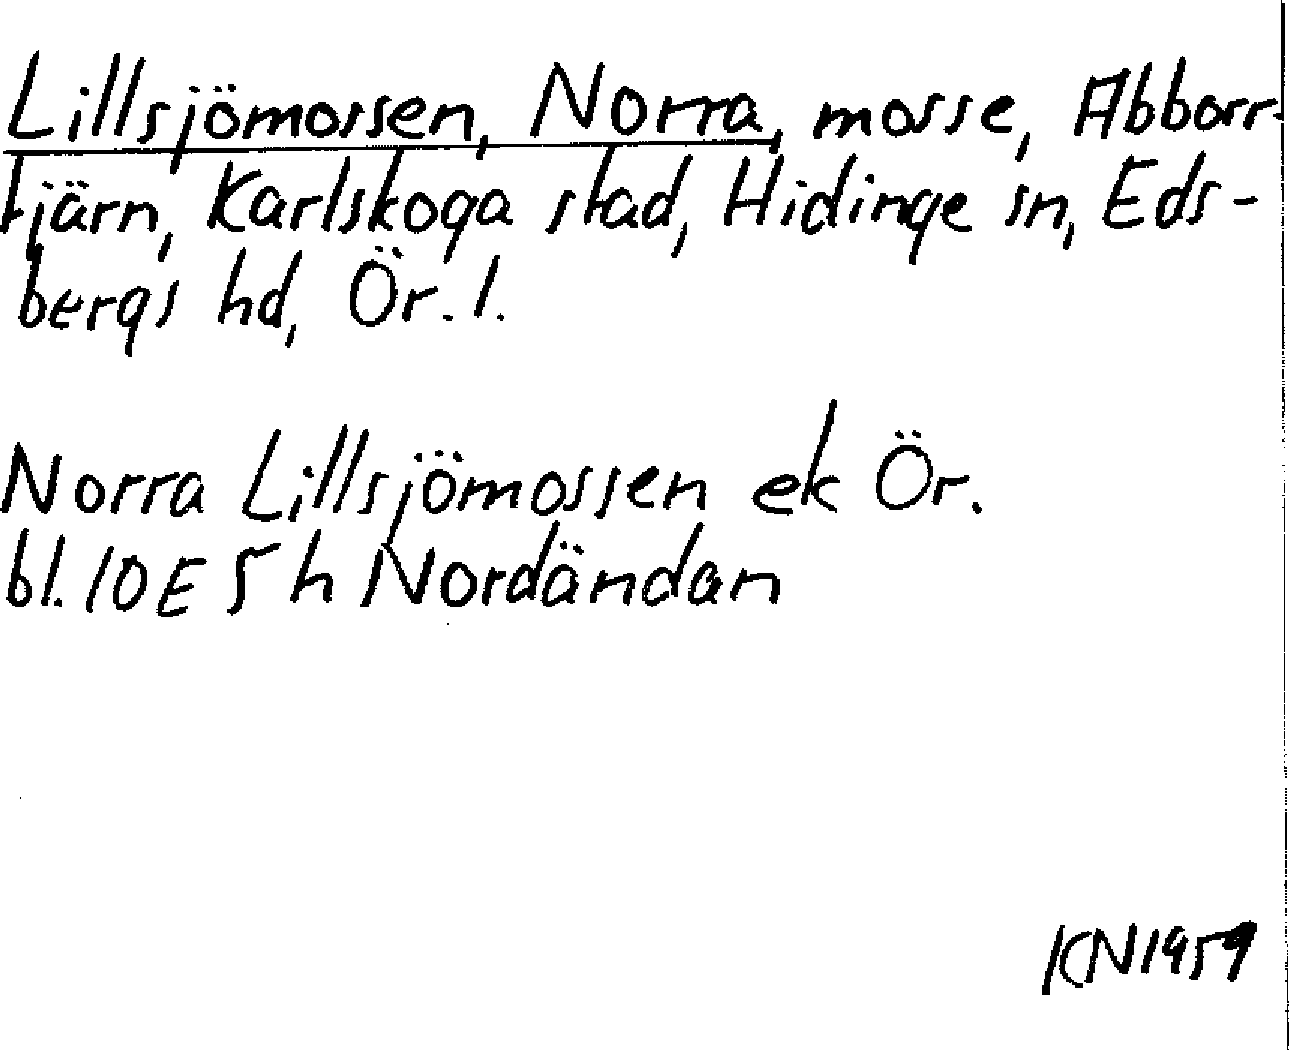 Lillsjömossen, Norra, mosse, Abborr-
tjärn, Karlskoga stad, Hidinge sn, Eds-
bergs hd, Ör. l.
Norra Lillsjömossen ek Ör.
bl. 10E 5h Nordändan
KN1959